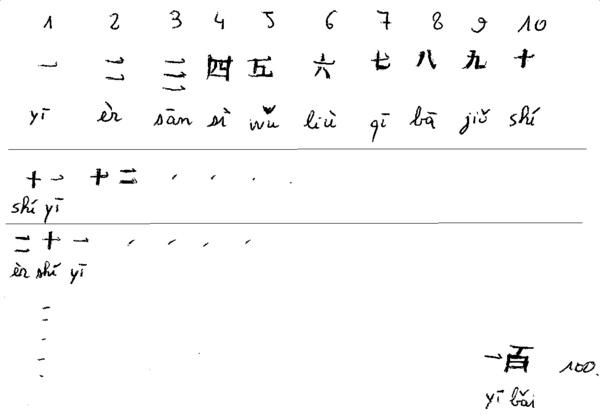 1 2 3 4 5 6 7 8 9 10
一 二 三 四 五 六 七 八 九 十
yī èr sān sì wǔ liù qī bā jiǔ shí
十一 十二 , , , , .
shí yī
二十一 , , , ,
èr shí yī
一百 100.
yī bǎi